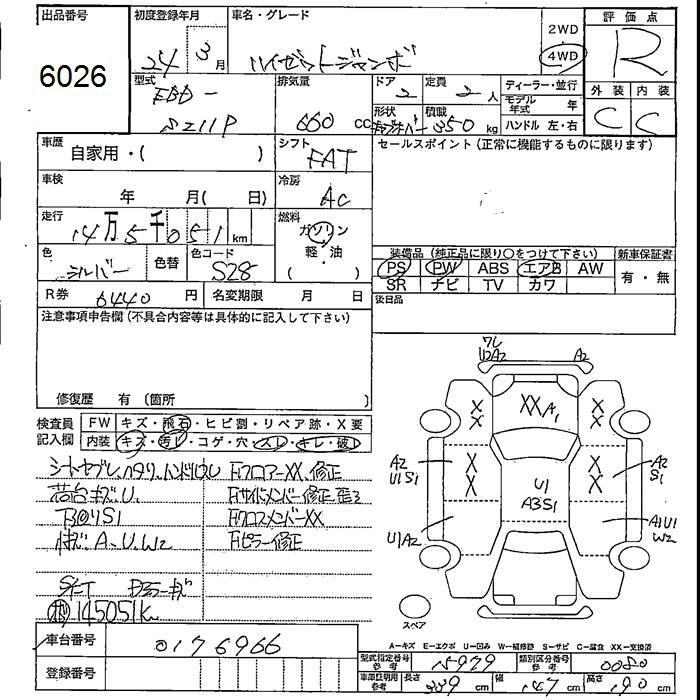 出品番号
6026
初度登録年月
24年 3月
車名・グレード
ハイゼットジャンボ
2WD
4WD
評価点
R
外装 内装
C C
型式
EBD-
S211P
排気量
660 cc
ドア
2
定員
2人
形状
積載
350 kg
ディーラー・並行
モデル年式 年
ハンドル 左・右
車歴
自家用・( )
シフト
FAT
セールスポイント(正常に機能するものに限ります)
車検
年 月( 日)
冷房
AC
走行
14万5千051km
燃料
ガソリン
軽・油
( )
色
シルバー
色替
色コード
S28
装備品(純正品に限り○をつけて下さい)
新車保証書
PS PW ABS エアB AW
SR ナビ TV カワ
有・無
R券 6440円
名変期限 月 日
後日品
注意事項申告欄(不具合内容等は具体的に記入して下さい)
修復歴 有(箇所 )
検査員記入欄
FW キズ・飛石・ヒビ割・リペア跡・X要
内装 キズ・汚れ・コゲ・穴・スレ・キレ・破レ
シートヤブレ、ヘタリ、ハンドルU
荷台キズ、U、
A、U、W2
Fフロアー XX、修正
Fサイドメンバー修正
FクロスメンバーXX
Fピラー修正
145051K
車台番号
0176966
登録番号
ワレ
U2A2
A2
XXA1
X
X
X
X
X
X
X
X
A2
U1S1
U1
A3S1
A2
S1
U1A2
A1U1
W2
スペア
A=キズ E=エクボ U=凹み W=補修跡 S=サビ C=腐食 XX=交換済
型式指定番号参考 15979
類別区分番号参考 0080
車庫証明用参考
長さ 339 cm
幅 147 cm
高さ 190 cm